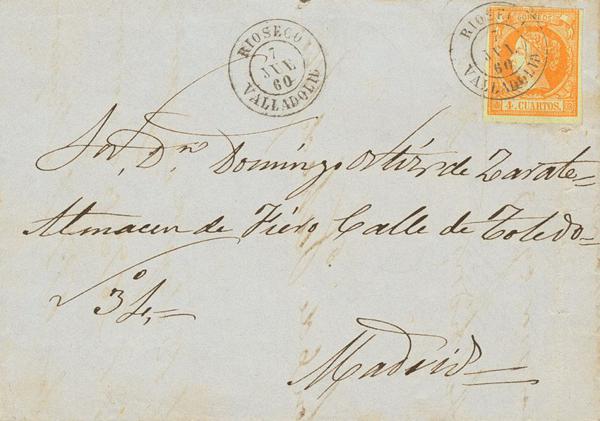 RIOSECO
7
JUL
60
VALLADOLID
CORREOS
4 CUARTOS.
RIOSECO
7
JUL
60
VALLADOLID
Sor. Dn. Domingo Ortiz de Zarate=
Almacen de Fiero Calle de Toledo=
Madrid